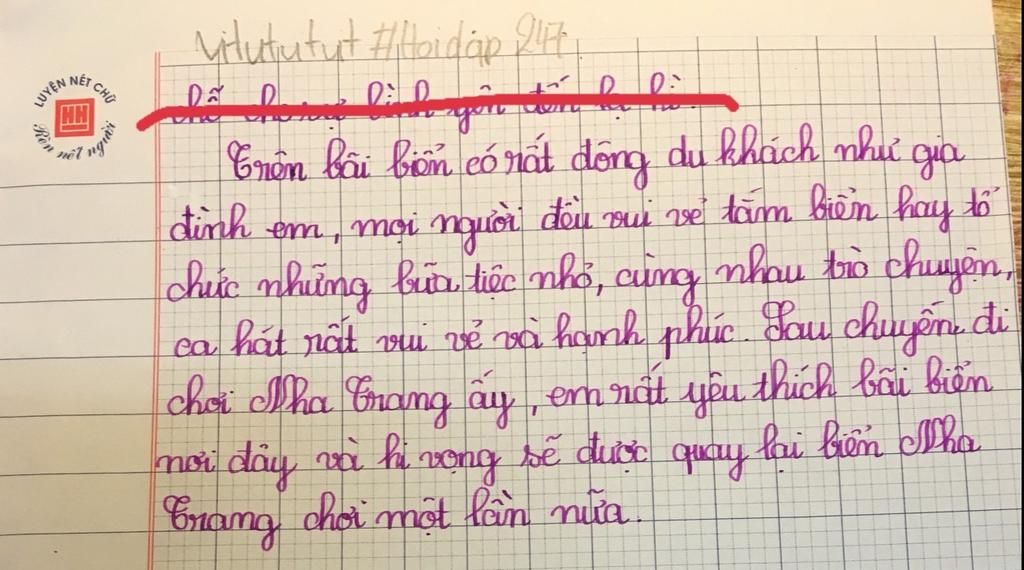 Vitututut #Hoidap247
LUYỆN NÉT CHỮ
HH
Rèn nết người
Trên bãi biển có rất đông du khách như gia
đình em, mọi người đều vui vẻ tắm biển hay tổ
chức những bữa tiệc nhỏ, cùng nhau trò chuyện,
ca hát rất vui vẻ và hạnh phúc. Sau chuyến đi
chơi Nha Trang ấy, em rất yêu thích bãi biển
nơi đây và hi vọng sẽ được quay lại biển Nha
Trang chơi một lần nữa.